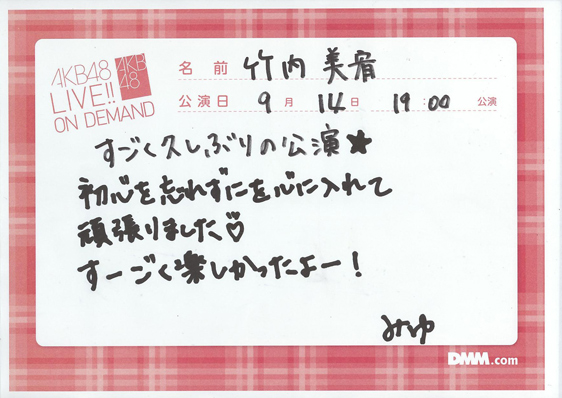 AKB48
LIVE!!
ON DEMAND
AKB
48
名前 竹内 美宥
公演日 9月 14日 19:00 公演
すごく久しぶりの公演★
初心を忘れずにを心に入れて
頑張りました♡
すーごく楽しかったよー!
みゆ
DMM.com